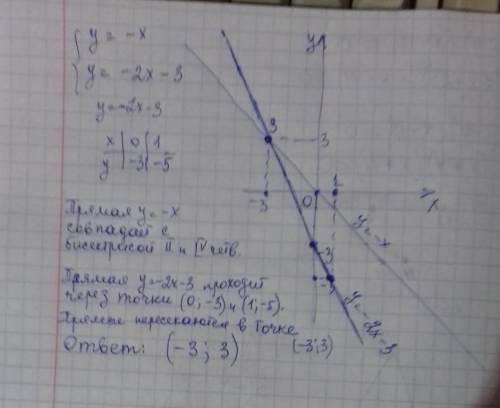 { y = -x
y = -2x - 3
y = -2x - 3
x | 0 | 1
y | -3 | -5
Прямая y = -x
совпадай с
бисектрисой II и IV четв.
Прямая y = -2x - 3 проходит
через точки (0; -3) и (1; -5).
пересекаются в точке
(-3; 3)
Ответ: (-3; 3)
y
3
3
-3
0
1
x
y = -x
-3
y = -2x - 3